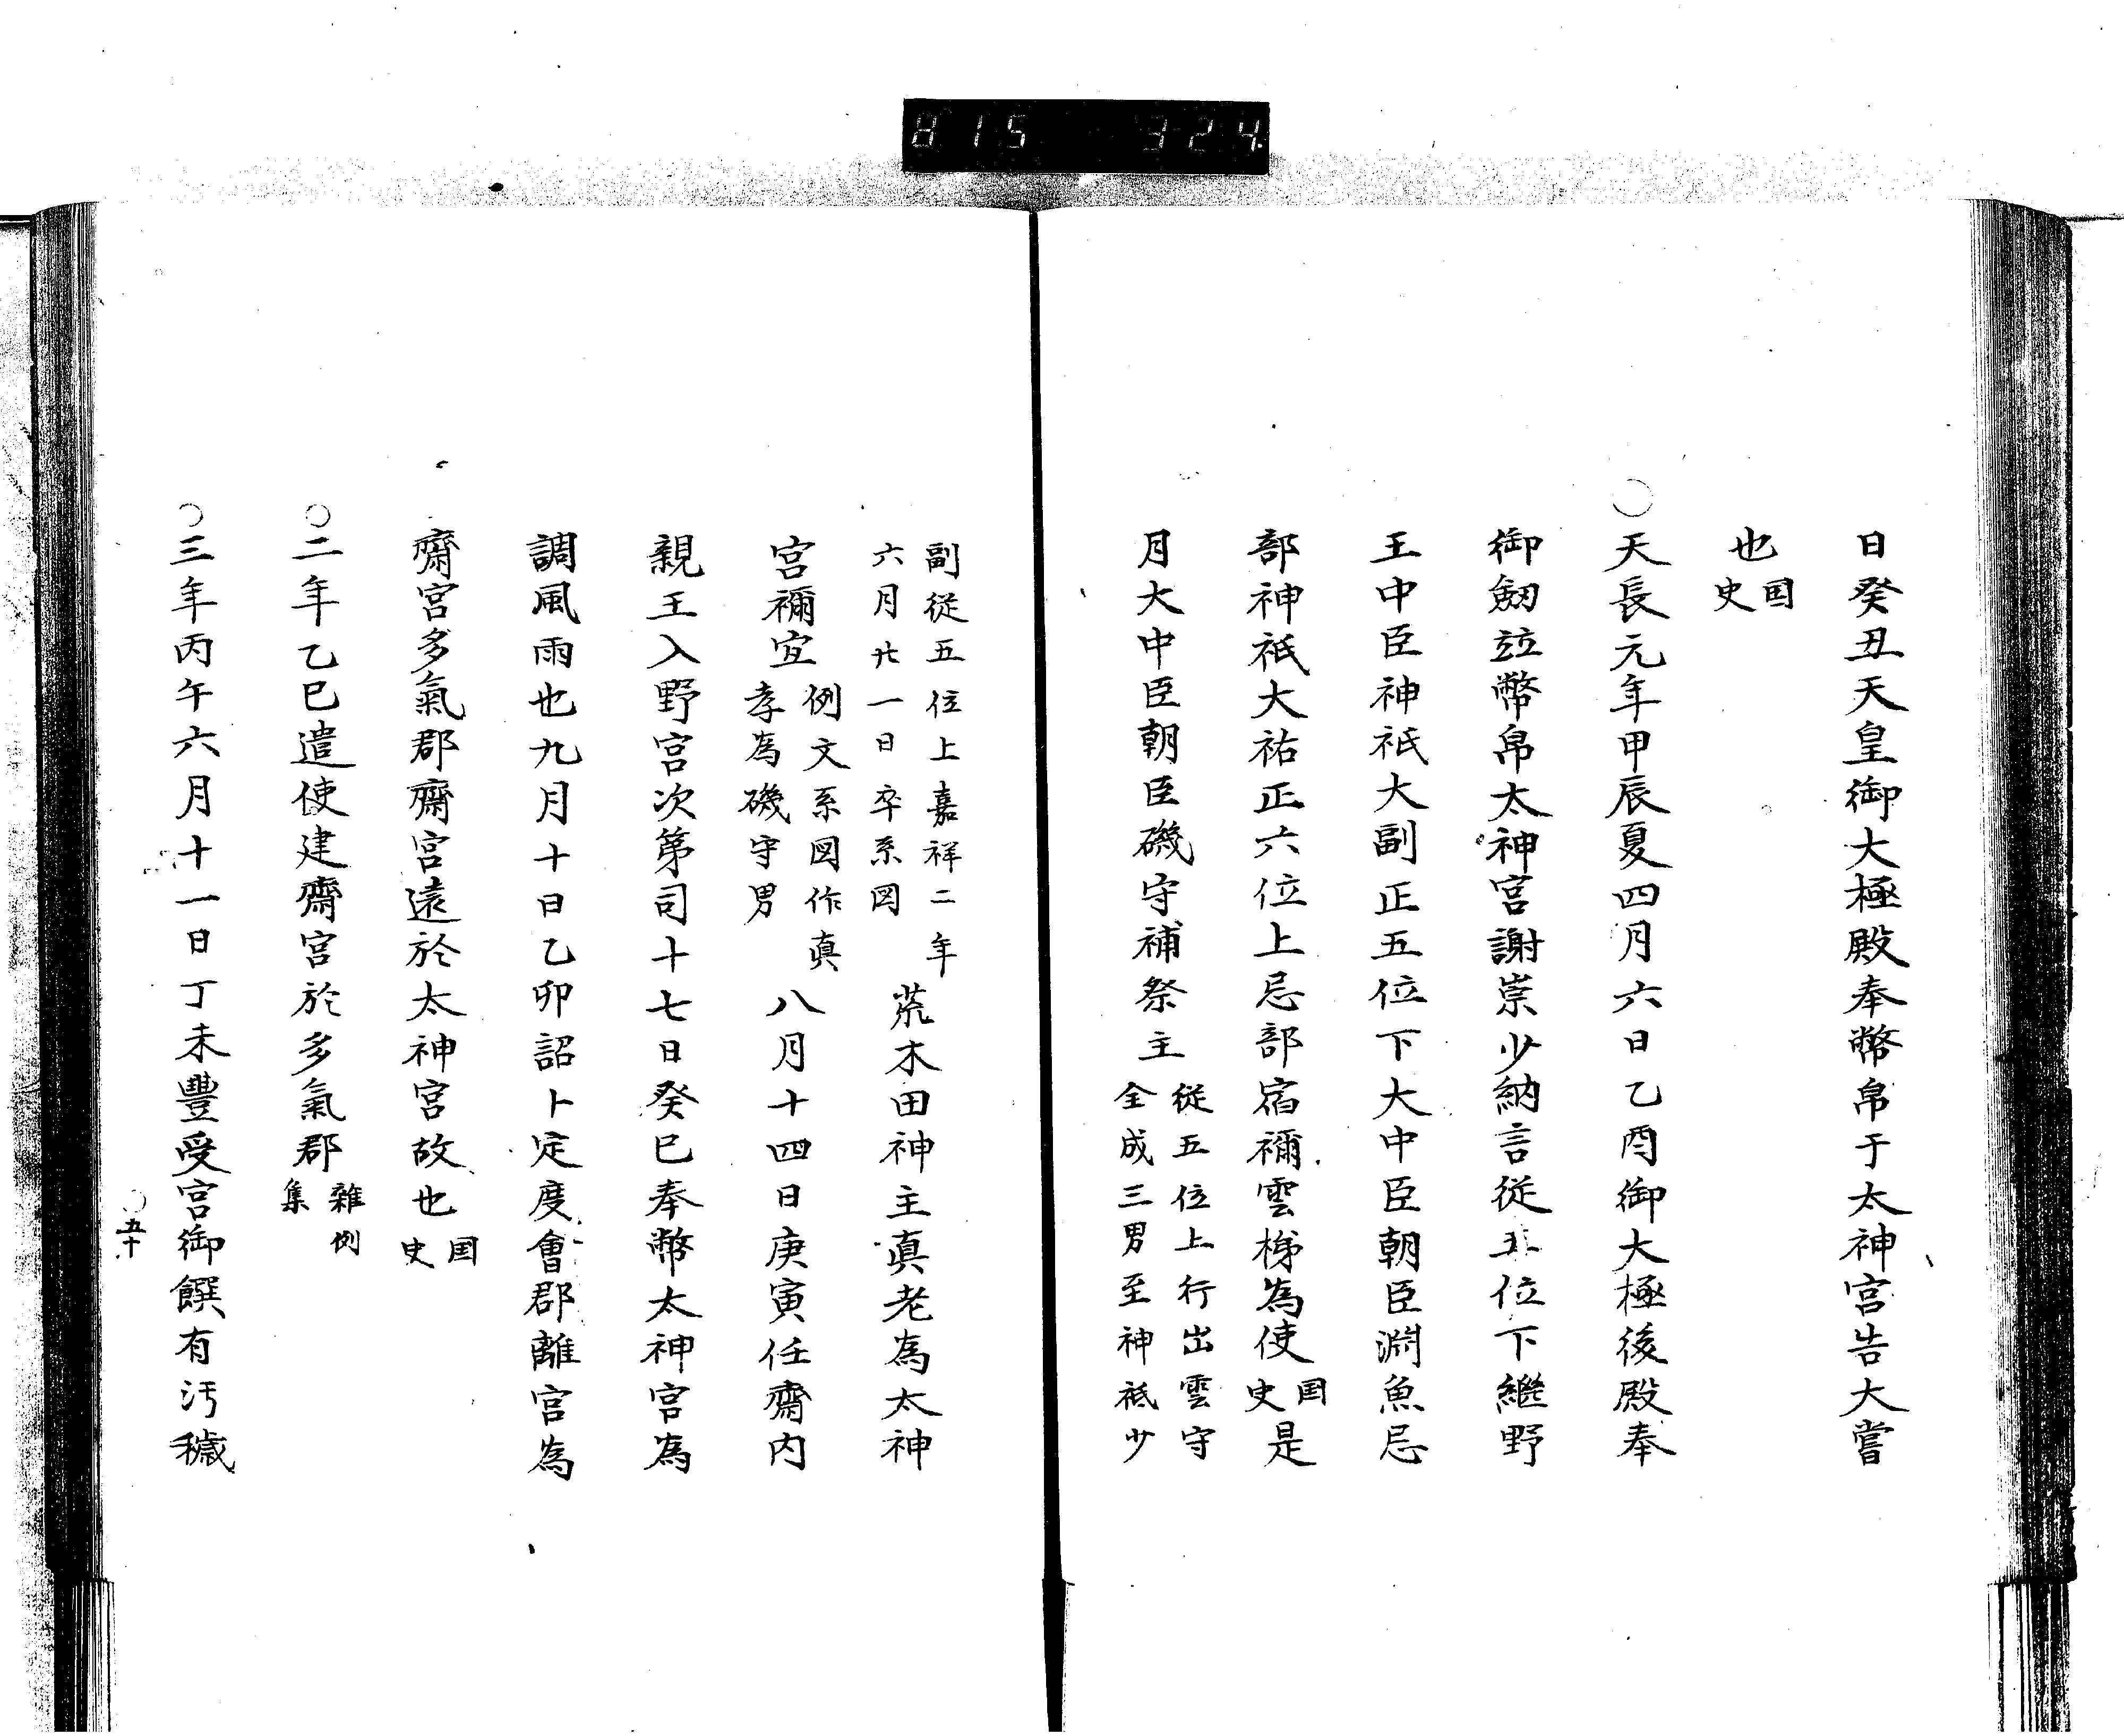 815 324
日癸丑天皇御大極殿奉幣帛于太神宮告大嘗
也国史
○天長元年甲辰夏四月六日乙酉御大極後殿奉
御劔竝幣帛太神宮謝祟少納言従五位下継野
王中臣神祇大副正五位下大中臣朝臣淵魚忌
部神祇大祐正六位上忌部宿禰雲梯為使国史是
月大中臣朝臣磯守補祭主従五位上行出雲守全成三男至神祇少
副従五位上嘉祥二年六月廿一日卒系図荒木田神主真老為太神
宮禰宜例文系図作真孝為磯守男八月十四日庚寅任齋内
親王入野宮次第司十七日癸巳奉幣太神宮為
調風雨也九月十日乙卯詔卜定度會郡離宮為
齋宮多氣郡齋宮遠於太神宮故也国史
○二年乙巳遣使建齋宮於多氣郡雜例集
○三年丙午六月十一日丁未豐受宮御饌有汚穢
○五十